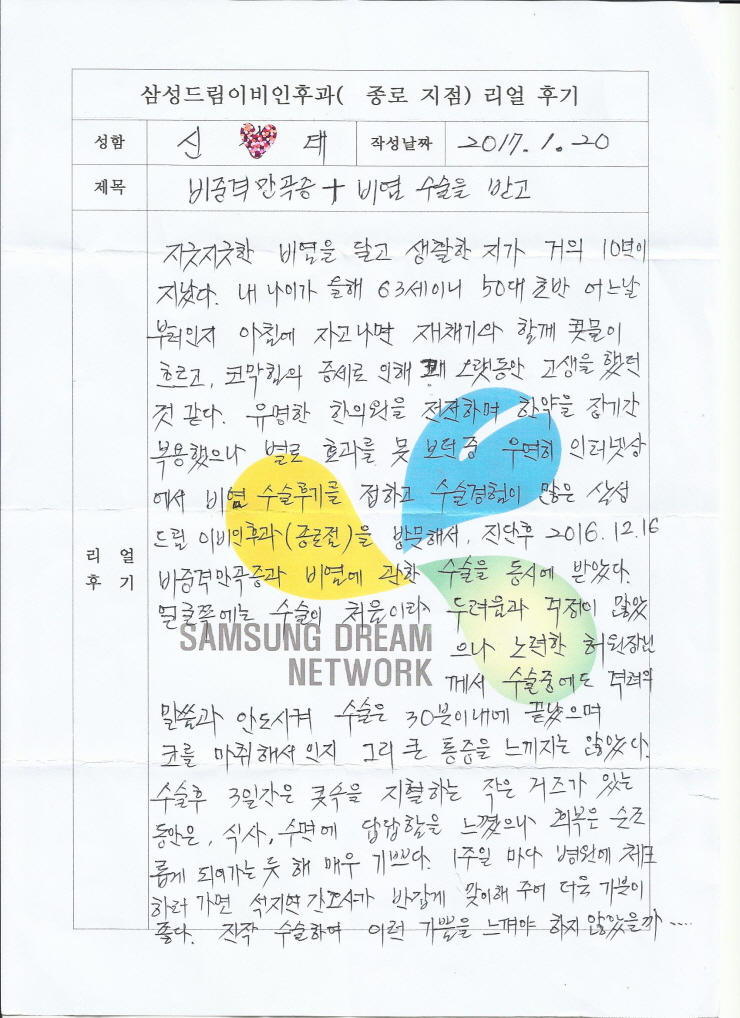 삼성드림이비인후과( 종로 지점) 리얼 후기
성함 신 태 작성날짜 2017. 1. 20
제목 비중격만곡증 + 비염 수술을 받고
리 얼
후 기
지긋지긋한 비염을 달고 생활한 지가 거의 10년이
지났다. 내 나이가 올해 63세이니 50대 초반 어느날
부터인지 아침에 자고나면 재채기와 함께 콧물이
흐르고, 코막힘의 증세로 인해 꽤 오랫동안 고생을 했던
것 같다. 유명한 한의원을 전전하며 한약을 장기간
복용했으나 별로 효과를 못 보던중 우연히 인터넷상
에서 비염 수술후기를 접하고 수술경험이 많은 삼성
드림 이비인후과(종로점)을 방문해서, 진단후 2016. 12. 16
비중격만곡증과 비염에 관한 수술을 동시에 받았다.
얼굴쪽에는 수술이 처음이라 두려움과 걱정이 많았
으나 노련한 허원장님
께서 수술중에도 격려의
말씀과 안도시켜 수술은 30분이내에 끝났으며
코를 마취해서 인지 그리 큰 통증을 느끼지는 않았다.
수술후 3일간은 콧속을 지혈하는 작은 거즈가 있는
동안은, 식사, 수면에 답답함을 느꼈으나 회복은 순조
롭게 되어가는 듯 해 매우 기쁘다. 1주일 마다 병원에 체크
하러 가면 석지연 간호사가 반갑게 맞이해 주어 더욱 기분이
좋다. 진작 수술하여 이런 기쁨을 느껴야 하지 않았을까 ....
SAMSUNG DREAM
NETWORK